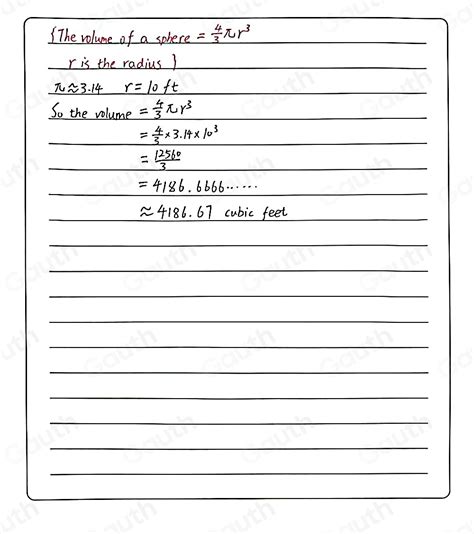 {The volume of a sphere = 4/3 πr³
r is the radius }
π≈3.14 r=10 ft
So the volume = 4/3 πr³
= 4/3 ×3.14×10³
= 12560/3
= 4186.6666......
≈ 4186.67 cubic feet